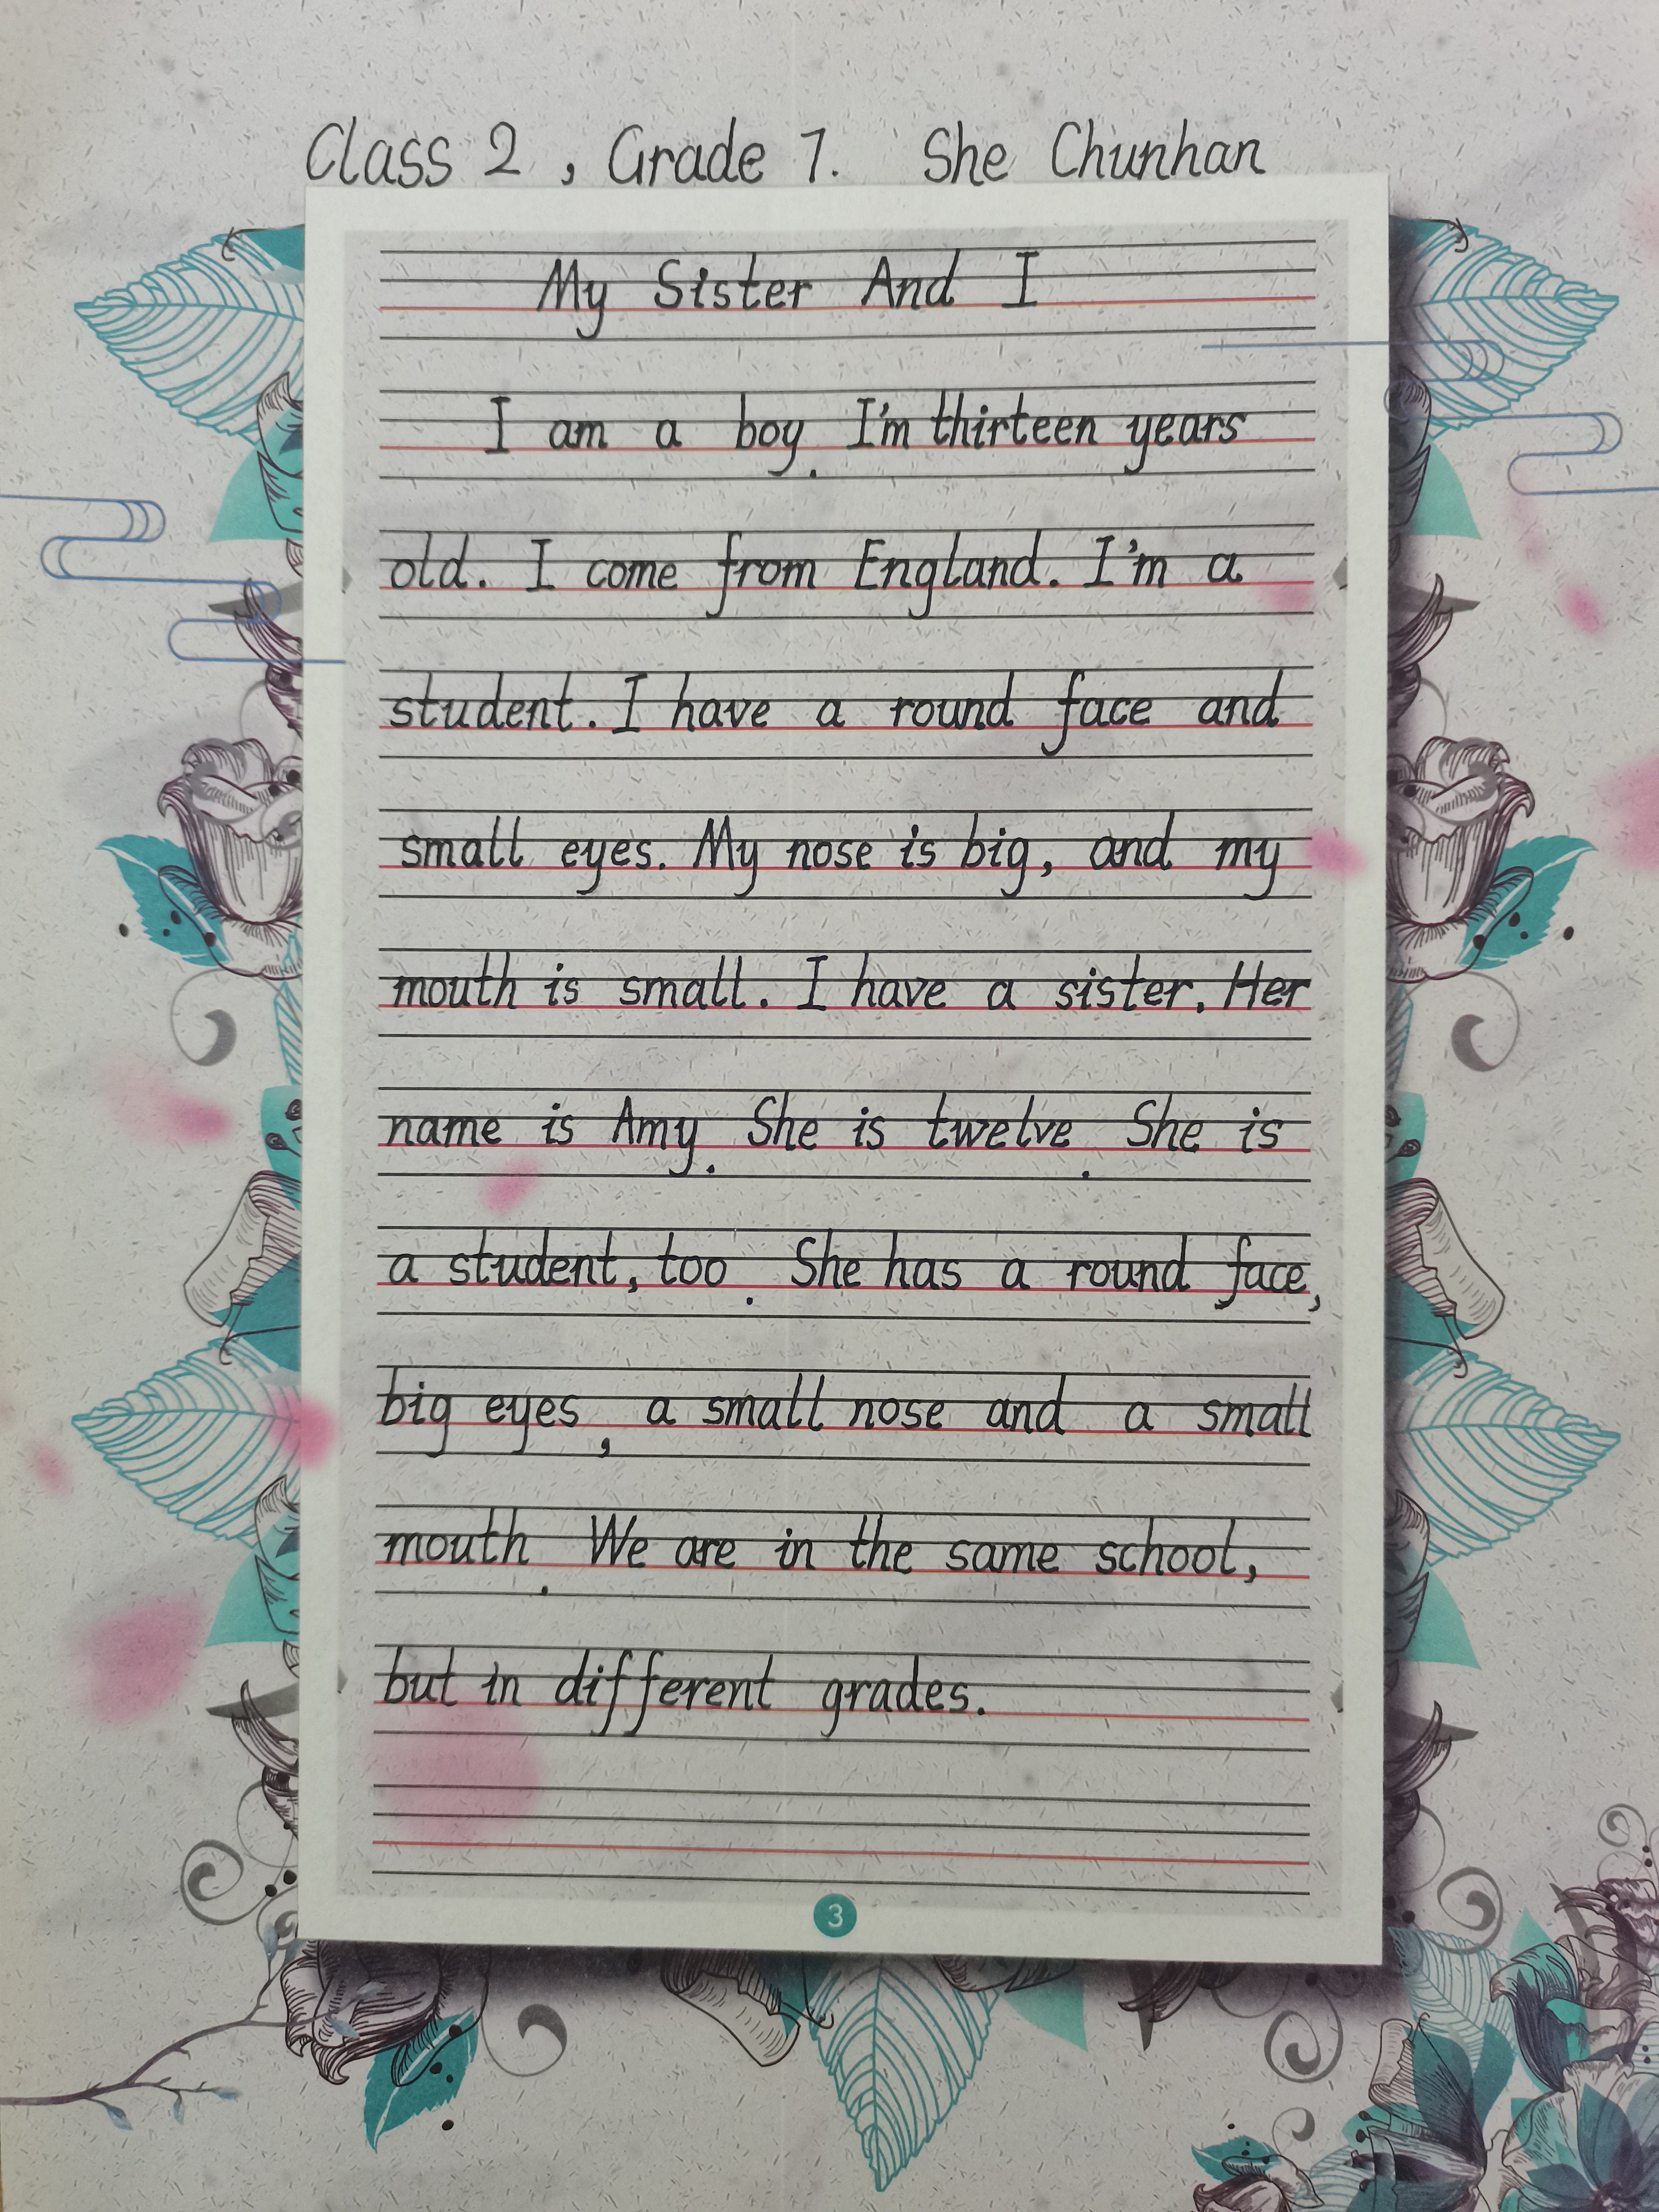 Class 2, Grade 7. She Chunhan
My Sister And I
I am a boy. I'm thirteen years
old. I come from England. I'm a
student. I have a round face and
small eyes. My nose is big, and my
mouth is small. I have a sister. Her
name is Amy. She is twelve. She is
a student, too. She has a round face,
big eyes, a small nose and a small
mouth. We are in the same school,
but in different grades.
3